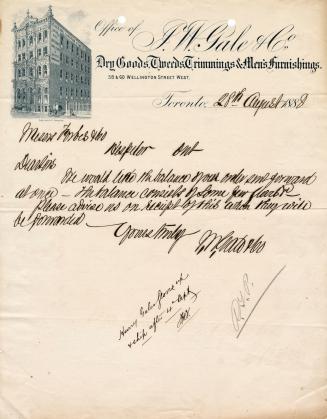 Office of J. W. Gale & Co.
Dry Goods, Tweeds, Trimmings & Men's Furnishings.
58 & 60 WELLINGTON STREET WEST.
Toronto, 28th August 1888
Messrs Forbes & Co
Hespeler Ont
Dear Sirs
We would like the balance of our order sent forward
at once – the balance consists of some few
Please advise us on receipt of this when they will
be forwarded –
Yours truly
J W Gale & Co
& ship after 10 Sept